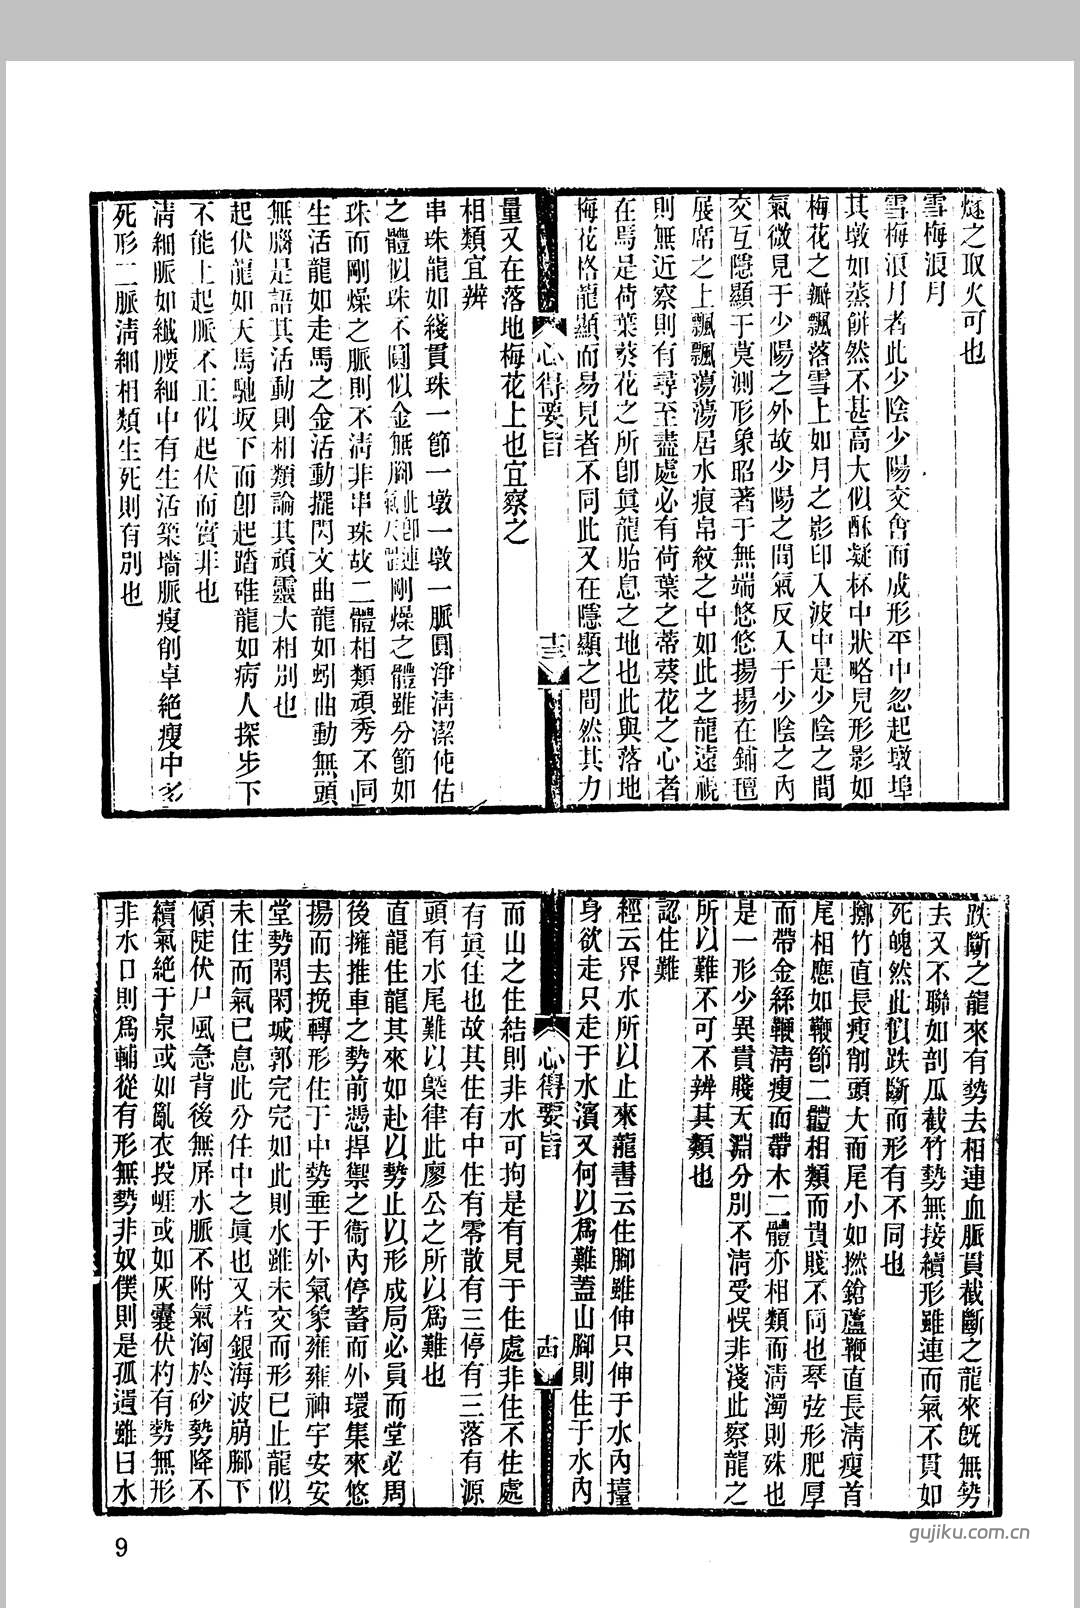 燧之取火可也
雪梅浪月
雪梅浪月者此少陰少陽交會而成形平中忽起墩埠
其墩如蒸餅然不甚高大似酥凝杯中狀略見形影如
梅花之瓣飄落雪上如月之影印入波中是少陰之間
氣微見于少陽之外故少陽之間氣反入于少陰之內
交互隱顯于莫測形象昭著于無端悠悠揚揚在鋪氊
展席之上飄飄蕩蕩居水痕帛紋之中如此之龍遠視
則無近察則有尋至盡處必有荷葉之蒂葵花之心者
在焉是荷葉葵花之所卽眞龍胎息之地也此與落地
梅花格龍顯而易見者不同此又在隱顯之間然其力
心得要旨
十三
量又在落地梅花上也宜察之
相類宜辨
串珠龍如綫貫珠一節一墩一墩一脈圓淨淸潔他估
之體似珠不圓似金無腳此卽連氣尺體剛燥之體雖分節如
珠而剛燥之脈則不淸非串珠故二體相類頑秀不同
生活龍如走馬之金活動擺閃文曲龍如蚓曲動無頭
無腦是語其活動則相類論其頑靈大相別也
起伏龍如天馬馳坂下而卽起踏碓龍如病人探步下
不能上起脈不正似起伏而實非也
淸細脈如纖腰細中有生活築墻脈瘦削卓絶瘦中多
死形二脈淸細相類生死則有別也
跌斷之龍來有勢去相連血脈貫截斷之龍來旣無勢
去又不聯如剖瓜截竹勢無接續形雖連而氣不貫如
死魄然此似跌斷而形有不同也
擲竹直長瘦削頭大而尾小如撚鎗蘆鞭直長淸瘦首
尾相應如鞭節二體相類而貴賤不同也琴弦形肥厚
而帶金絲鞭淸瘦而帶木二體亦相類而淸濁則殊也
是一形少異貴賤天淵分別不淸受悞非淺此察龍之
所以難不可不辨其類也
認住難
經云界水所以止來龍書云住腳雖伸只伸于水內擡
身欲走只走于水濱又何以爲難蓋山腳則住于水內
心得要旨
十四
而山之住結則非水可拘是有見于住處非住不住處
有眞住也故其住有中住有零散有三停有三落有源
頭有水尾難以槩律此廖公之所以爲難也
直龍住龍其來如赴以勢止以形成局必員而堂必周
後擁推車之勢前憑捍禦之衞內停蓄而外環集來悠
揚而去挽轉形住于中勢垂于外氣象雍雍神宇安安
堂勢閑閑城郭完完如此則水雖未交而形已止龍似
未住而氣已息此分住中之眞也又若銀海波崩腳下
傾陡伏尸風急背後無屏水脈不附氣洶於砂勢降不
續氣絶于泉或如亂衣投崕或如灰囊伏杓有勢無形
非水口則爲輔從有形無勢非奴僕則是孤遺雖曰水
9
gujiku.com.cn